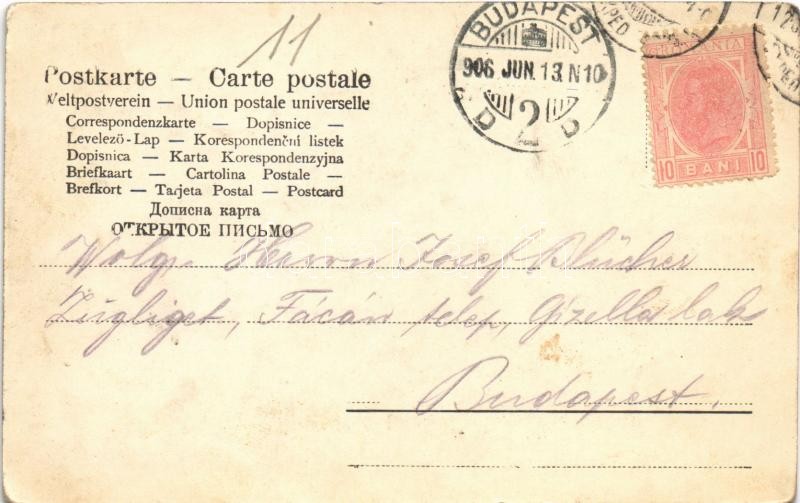 11
Postkarte — Carte postale
Weltpostverein — Union postale universelle
Correspondenzkarte — Dopisnice —
Levelező-Lap — Korespondenční listek
Dopisnica — Karta Korespondenzyjna
Briefkaart — Cartolina Postale —
Brefkort — Tarjeta Postal — Postcard
Дописна карта
ОТКРЫТОЕ ПИСЬМО
BUDAPEST
906 JUN. 13. N10
D 2 D
ROMANIA
10 BANI 10
Wolg. Herrn Josef Blücher
Zugliget, Fácán telep, Gizella lak
Budapest.